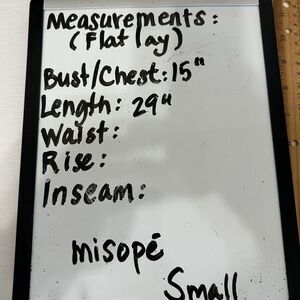 Measurements:
(Flat lay)
Bust/Chest: 15"
Length: 29"
Waist:
Rise:
Inseam:
misopé
Small